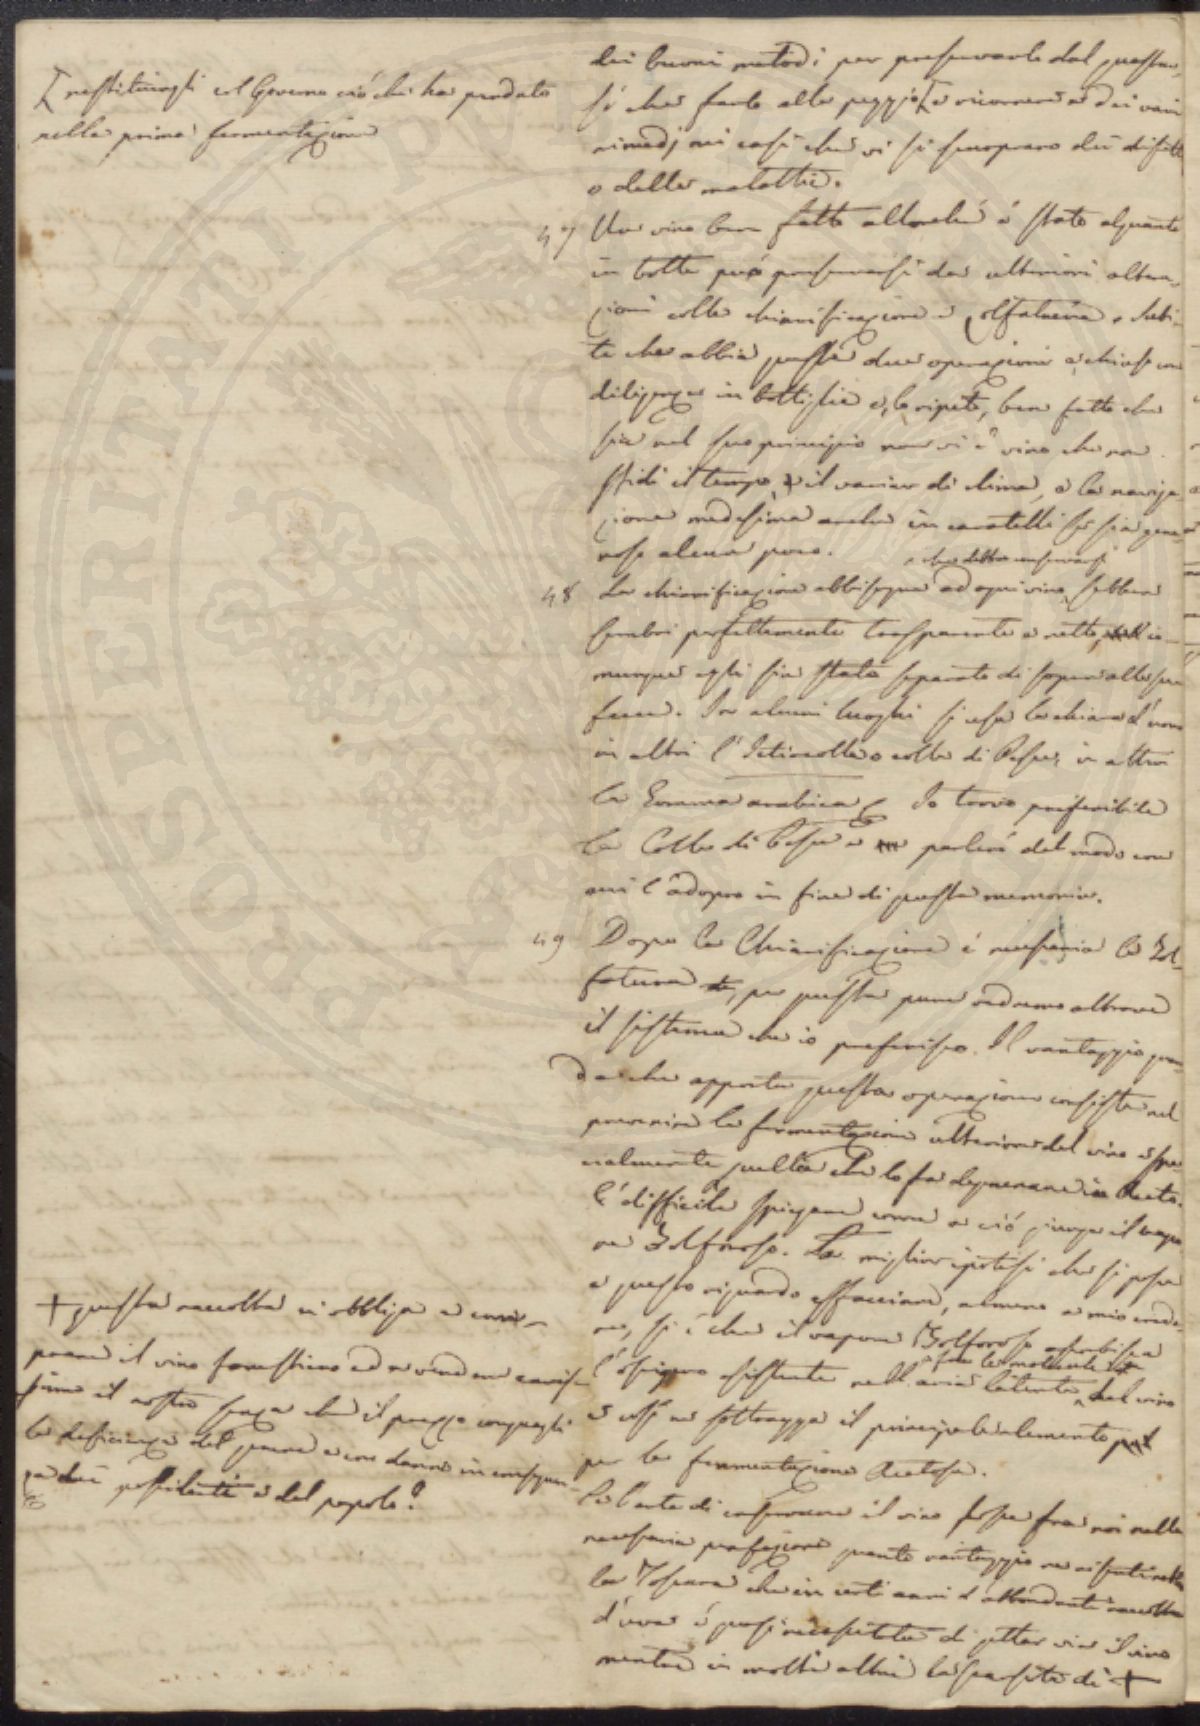 dei buoni metodi per preservarlo dal guastar
si che farlo alla peggio [e ricorrere a dei vari
rimedj nei casi che vi si scuoprano dei difetti
o delle malattie.
[restituirgli col Governo ciò che ha perduto
nella prima fermentazione
47 Un vino ben fatto allorché è stato alquanto
in botte può preservarsi da ulteriori altera-
zioni colla chiarificazione e solfatura. Subi-
te che abbia queste due operazioni e chiuso con
diligenza in bottiglie e, lo ripeto, ben fatto che
sia nel suo principio non vi è vino che non
sfidi il tempo, il variar di clima, e la naviga-
zione medesima anche in caratelli se sia gene-
roso alcun poco.
48 La chiarificazione abbisogna ad ogni vino, sebbene
e che debba conservarsi
sembri perfettamente trasparente e netto, co-
munque egli sia stato separato di sopra alle sue
fecce. In alcuni luoghi si usa la chiara d'uovo
in altri l'Ictiocolla o colla di Pesce, in altri
la Gomma arabica. Io trovo preferibile
la Colla di Pesce e parlerò del modo con
cui l'adopro in fine di questa memoria.
49 Dopo la Chiarificazione è necessaria la Sol-
fatura, per questa pure vedremo altrove
il sistema che io preferisco. Il vantaggio gran-
de che apporta questa operazione consiste nel
prevenire la fermentazione ulteriore del vino e spe-
cialmente quella che lo fa degenerare in Aceto.
È difficile spiegare come a ciò giunga il vapo-
re Solforoso. La miglior ipotesi che si possa
a questo riguardo affacciare, almeno a mio crede-
re, si è che il vapore Solforoso assorbisca
l'ossigeno esistente nell'aria latente, del vino
fra le molecole
e così ne sottragga il principale elemento
per la fermentazione Acetosa.
Se l'arte di conservare il vino fosse fra noi nella
necessaria perfezione quanto vantaggio ne
la Toscana che in certi anni d'abbondante raccolta
d'uva è quasi necessitata di gettar via il vino
mentre in molti altri la scarsità di +
+ questa raccolta ci obbliga a com-
prare il vino forestiero ed a vendere caris-
simo il nostro senza che il prezzo conguagli
la deficienza del genere e con danno in conseguen-
za dei possidenti e del popolo?